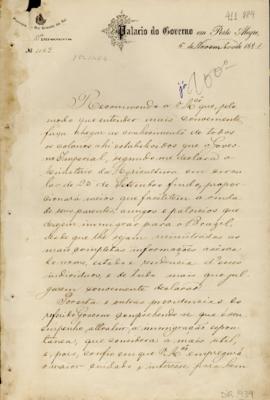 Palacio do Governo em Porto Alegre,
5 de Novembro de 1881.
Recommendo a V. Mcê que, pelo
modo que entender mais conveniente,
faça chegar ao conhecimento de todos
os colonos ahi estabelecidos que o Gover-
no Imperial, segundo me declara o
Ministerio da Agricultura em circu-
lar de 20 de Setembro findo, propor-
cionará meios que facilitem a vinda
de seus parentes, amigos e patricios que
desejem immigração para o Brazil,
desde que lhe sejam remettidas as
mais completas informações acerca
do nome, estado e residencia d'esses
individuos, e de tudo mais que jul-
garem conveniente declarar.
Por esta e outras providencias do
referido Governo comprehende-se que é seu
empenho a immigração espon-
tanea, que considera a mais util,
e, pois, confio em que V. Mcê empregará
o maior cuidado e interesse para bem